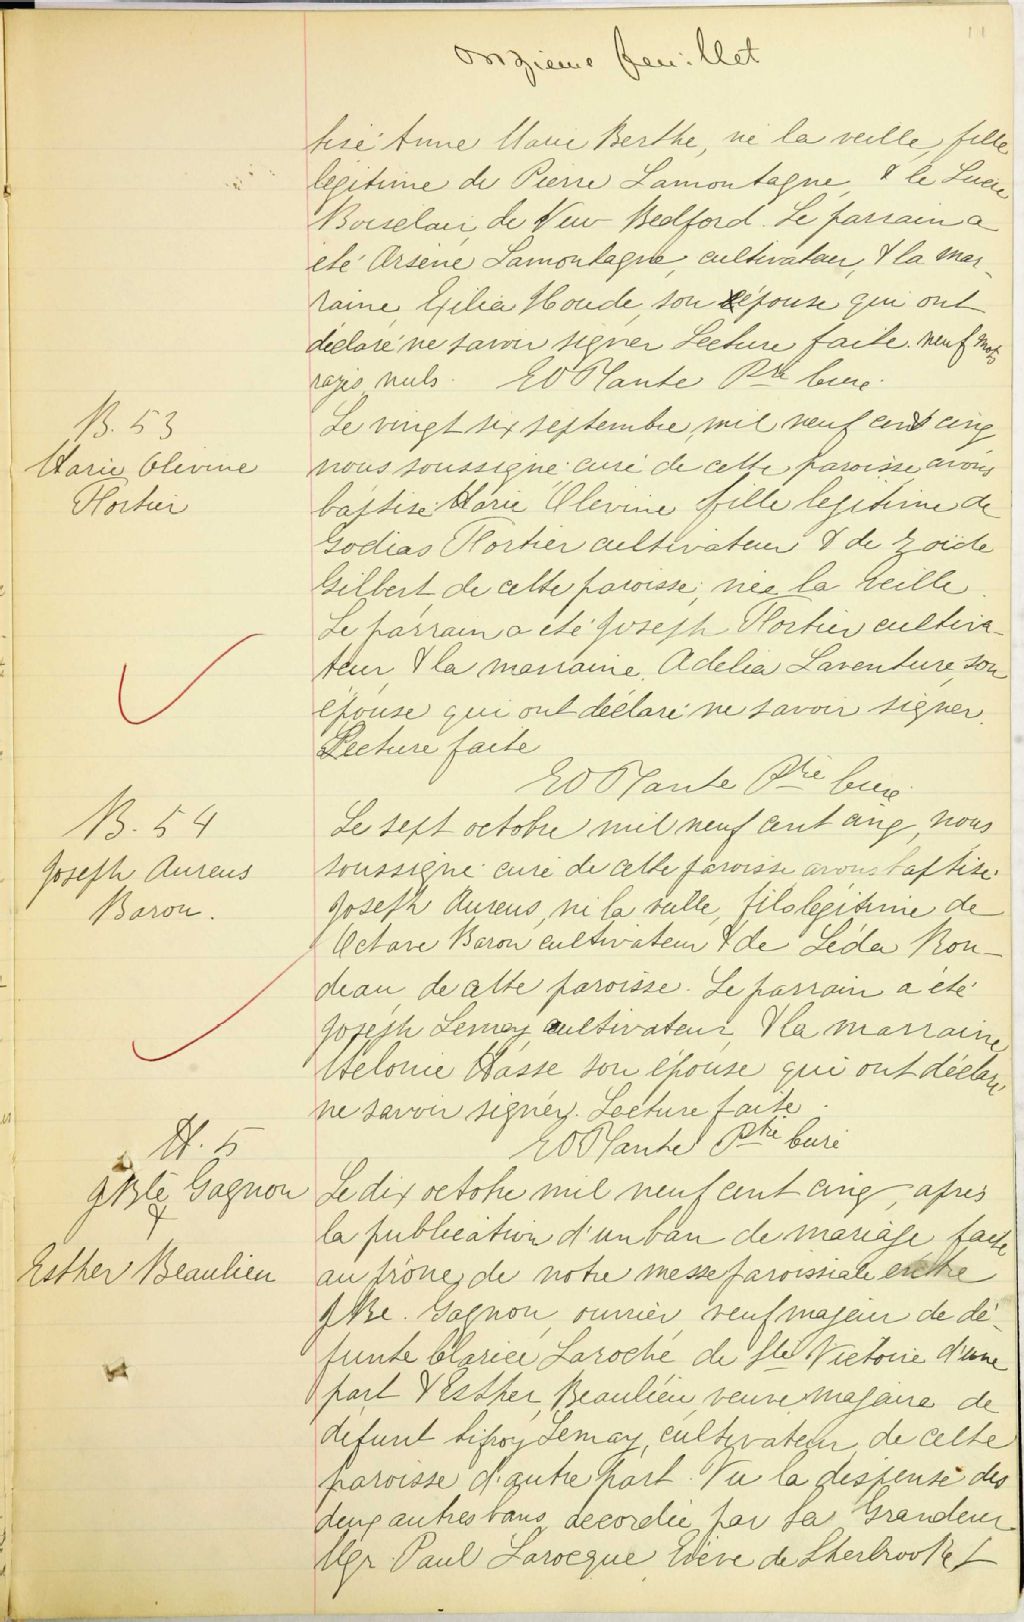 11
onzieme feuillet
tisé Anne Marie Berthe, né la veille, fille
légitime de Pierre Lamontagne, & le Lucie
Boisclair, de New Bedford. Le parrain a
été Arsène Lamontagne, cultivateur, & la mar-
raine, Exilia Houde, son épouse qui ont
déclaré ne savoir signer Lecture faite. neuf mots
rayés nuls. EO Plante Ptre Curé.
B. 53
Marie Olevine
Fortier
Le vingt six septembre, mil neuf cent cinq
nous soussigné curé de cette paroisse avons
baptisé Marie Olevine fille legitime de
Godias Fortier cultivateur & de Zoïde
Gilbert, de cette paroisse, née la veille.
Le parrain a été Joseph Fortier cultiva-
teur, & la marraine, Adelia Laventure, son
épouse qui ont déclaré ne savoir signer.
Lecture faite
EO Plante Ptre Curé.
B. 54
Joseph Aureus
Baron.
Le sept octobre mil neuf cent cinq, nous
soussigné curé de cette paroisse avons baptisé
Joseph Aureus, né la veille, fils légitime de
Octave Baron cultivateur & de Léda Ron-
deau, de cette paroisse. Le parrain a été
Joseph Lemay, cultivateur, & la marraine
Mélonie Hasse son épouse qui ont déclaré
ne savoir signer. Lecture faite.
EO Plante Ptre Curé
M. 5
J Bte Gagnon
&
Esther Beaulieu
Le dix octobre mil neuf cent cinq, après
la publication d'un ban de mariage faite
au prône de notre messe paroissiale entre
J Bte. Gagnon, ouvrier veuf majeur de dé-
funte Clarice Laroche de Ste Victoire d'une
part & Esther Beaulieu, veuve majeure de
défunt Sifroy Lemay, cultivateur, de cette
paroisse d'autre part. Vu la dispense des
deux autres bans accordée par Sa Grandeur
Mgr Paul Larocque Evêve de Sherbrooke &